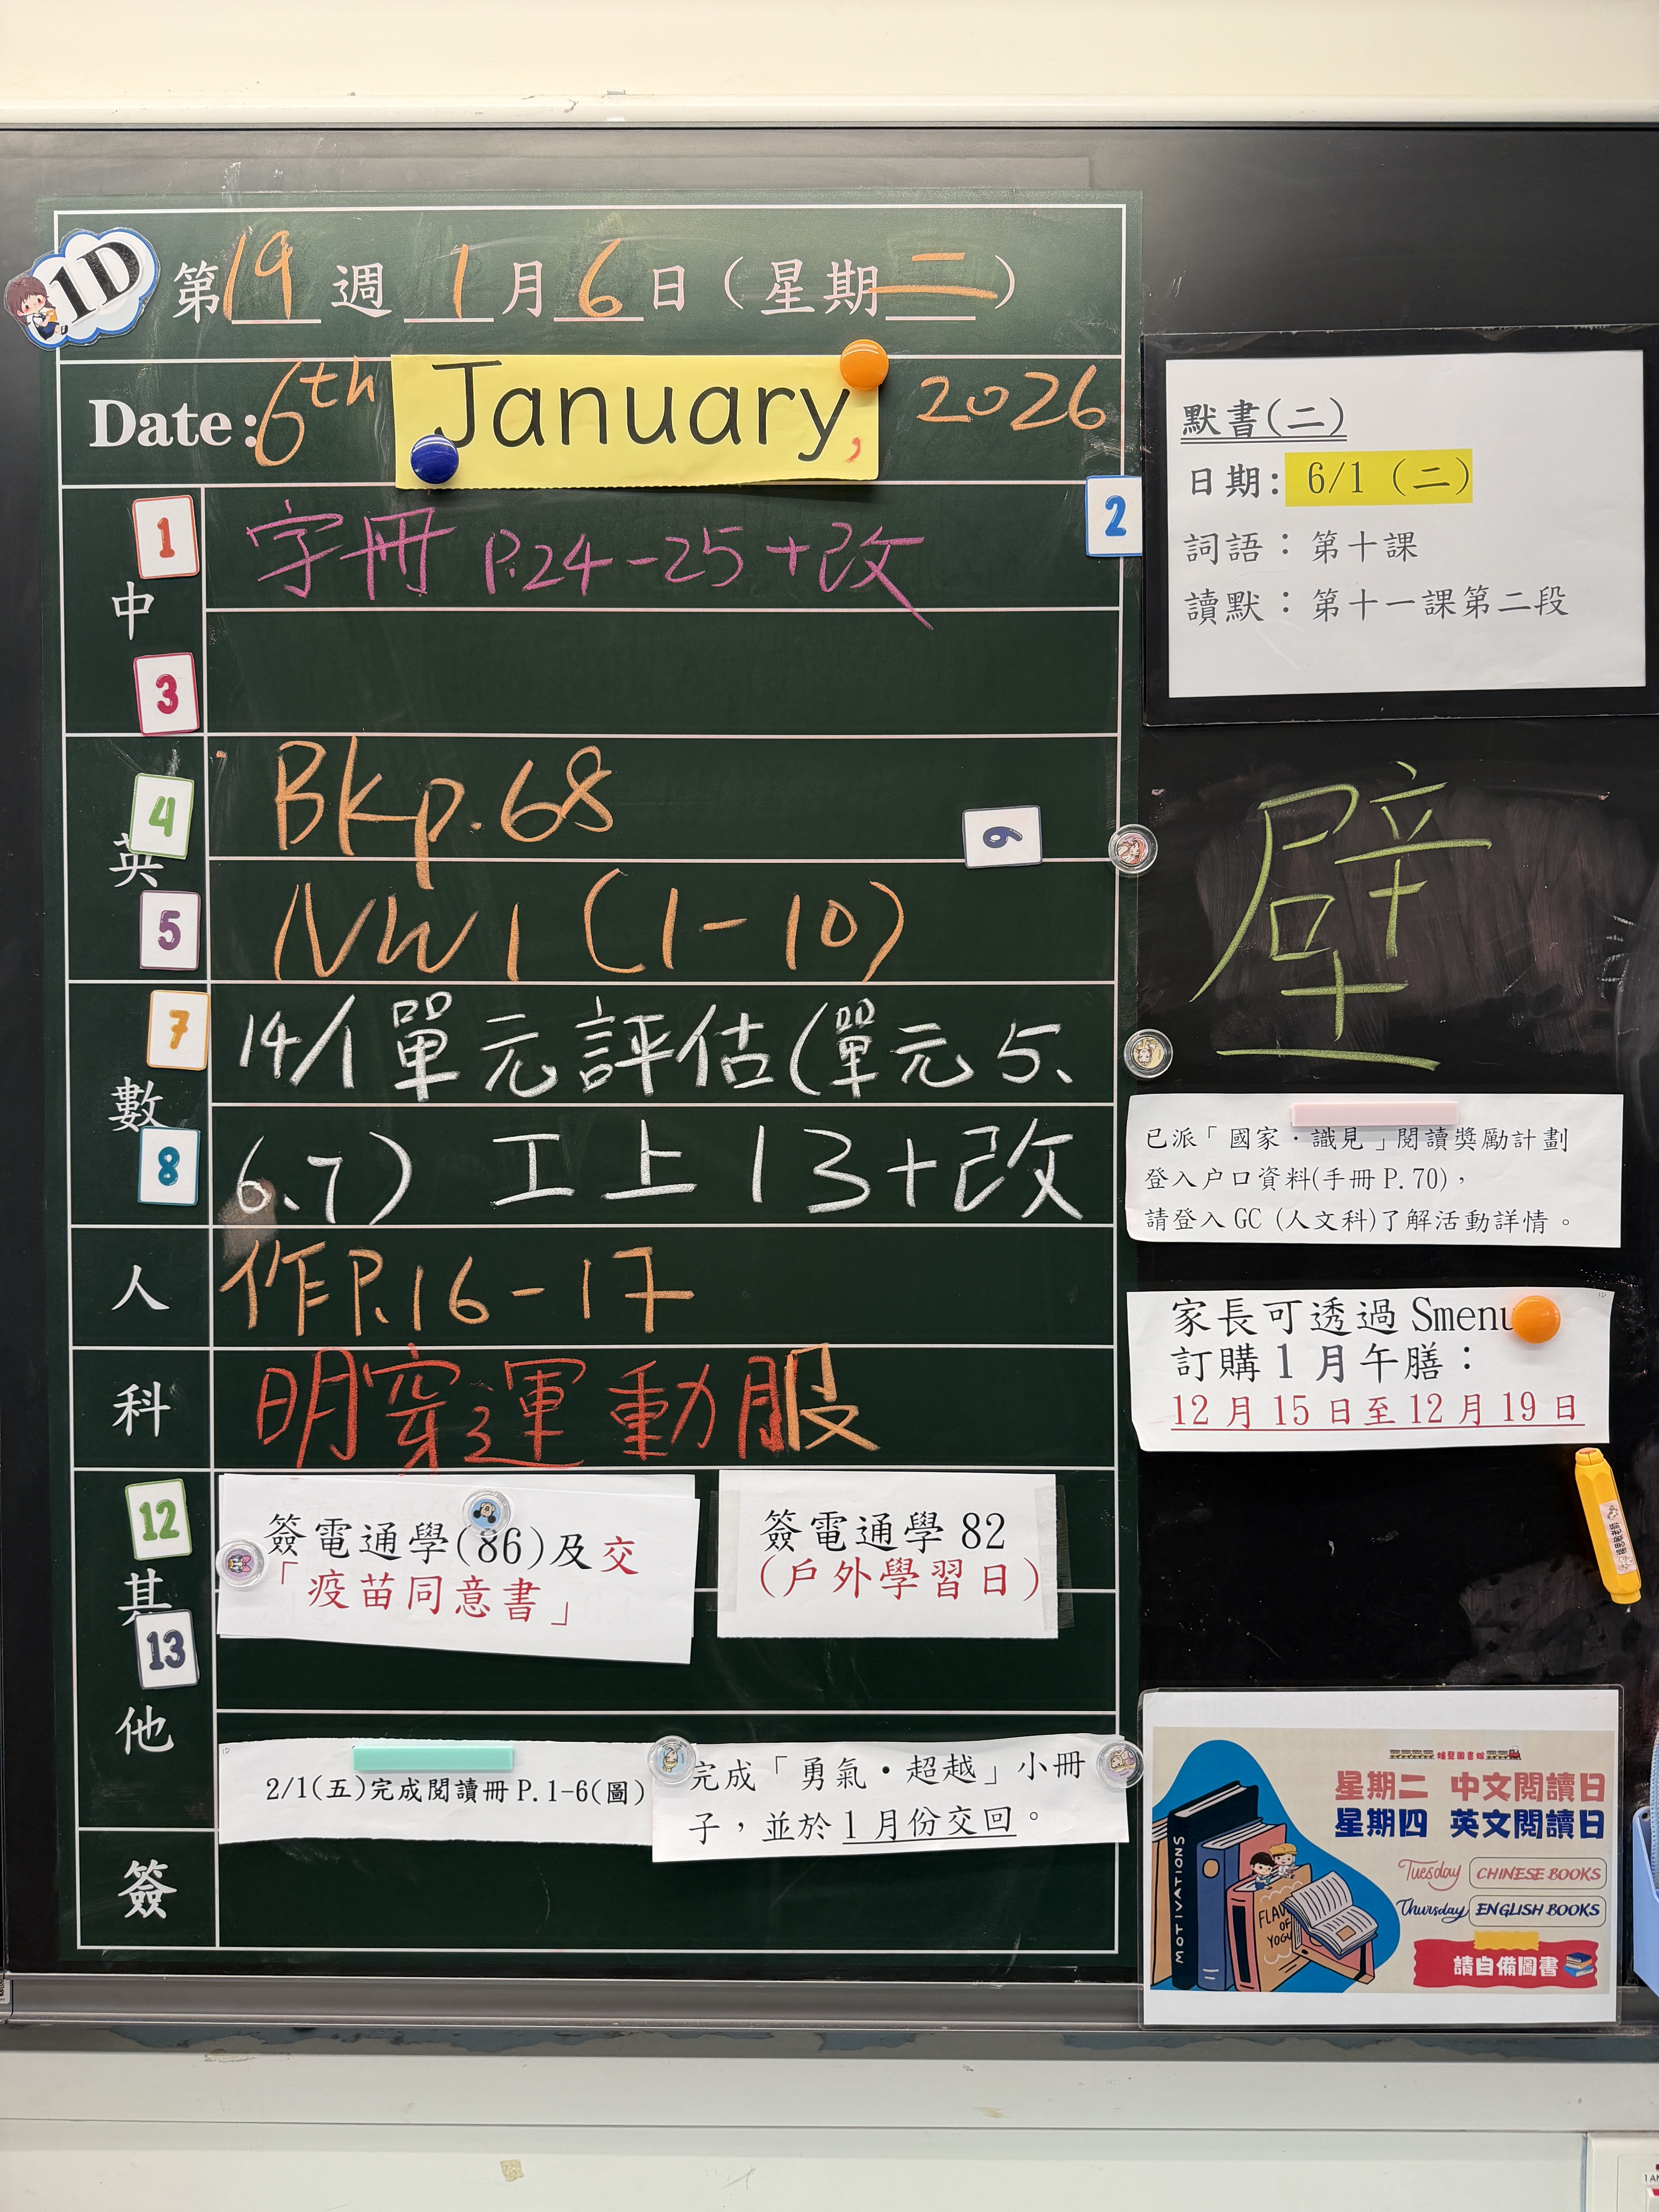 1D
第19週 1月6日（星期二）
Date: 6th January, 2026
1
2
中
字冊 P.24-25+改
3
4
英
Bk p.68
6
5
NW 1 (1-10)
7
數
14/1單元評估(單元5、
8
6、7) 工上13+改
人
作P.16-17
科
明穿運動服
12
其
簽電通學(86)及交
「疫苗同意書」
簽電通學 82
(戶外學習日)
13
他
1D
2/1(五)完成閱讀冊P.1-6(圖)
完成「勇氣•超越」小冊
子，並於1月份交回。
簽
默書(二)
日期: 6/1 (二)
詞語：第十課
讀默：第十一課第二段
壁
已派「國家‧識見」閱讀獎勵計劃
登入户口資料(手冊P.70)，
請登入GC (人文科)了解活動詳情。
1D
家長可透過Smenu
訂購1月午膳：
12月15日至12月19日
星期二 中文閱讀日
星期四 英文閱讀日
Tuesday CHINESE BOOKS
Thursday ENGLISH BOOKS
請自備圖書
MOTIVATIONS
OF